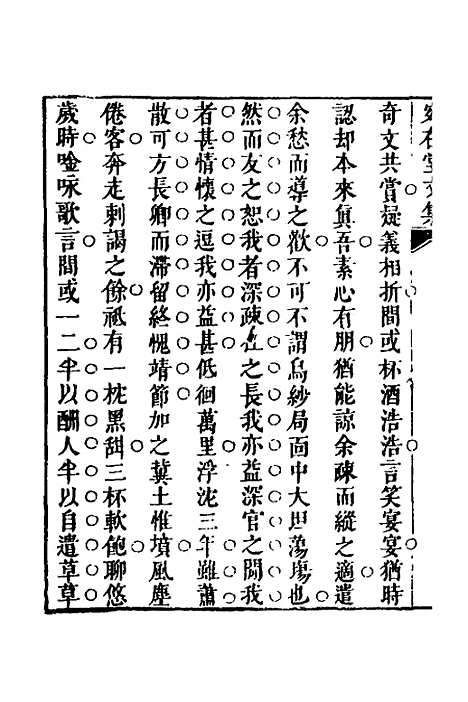 奇文共賞疑義相折間或杯酒浩浩言笑宴宴猶時
認却本來眞吾素心有朋猶能諒余疎而縱之適遣
余愁而導之歡不可不謂烏紗局面中大坦蕩塲也
然而友之恕我者深疎在之長我亦益深官之閒我
者甚情懷之逗我亦益甚低徊萬里浮沈三年雖蕭
散可方長卿而滯留終愧靖節加之冀土惟墳風塵
倦客奔走刺謁之餘祗有一枕黑甜三杯軟飽聊悠
歲時唫咏歌言間或一二半以酬人半以自遣草草